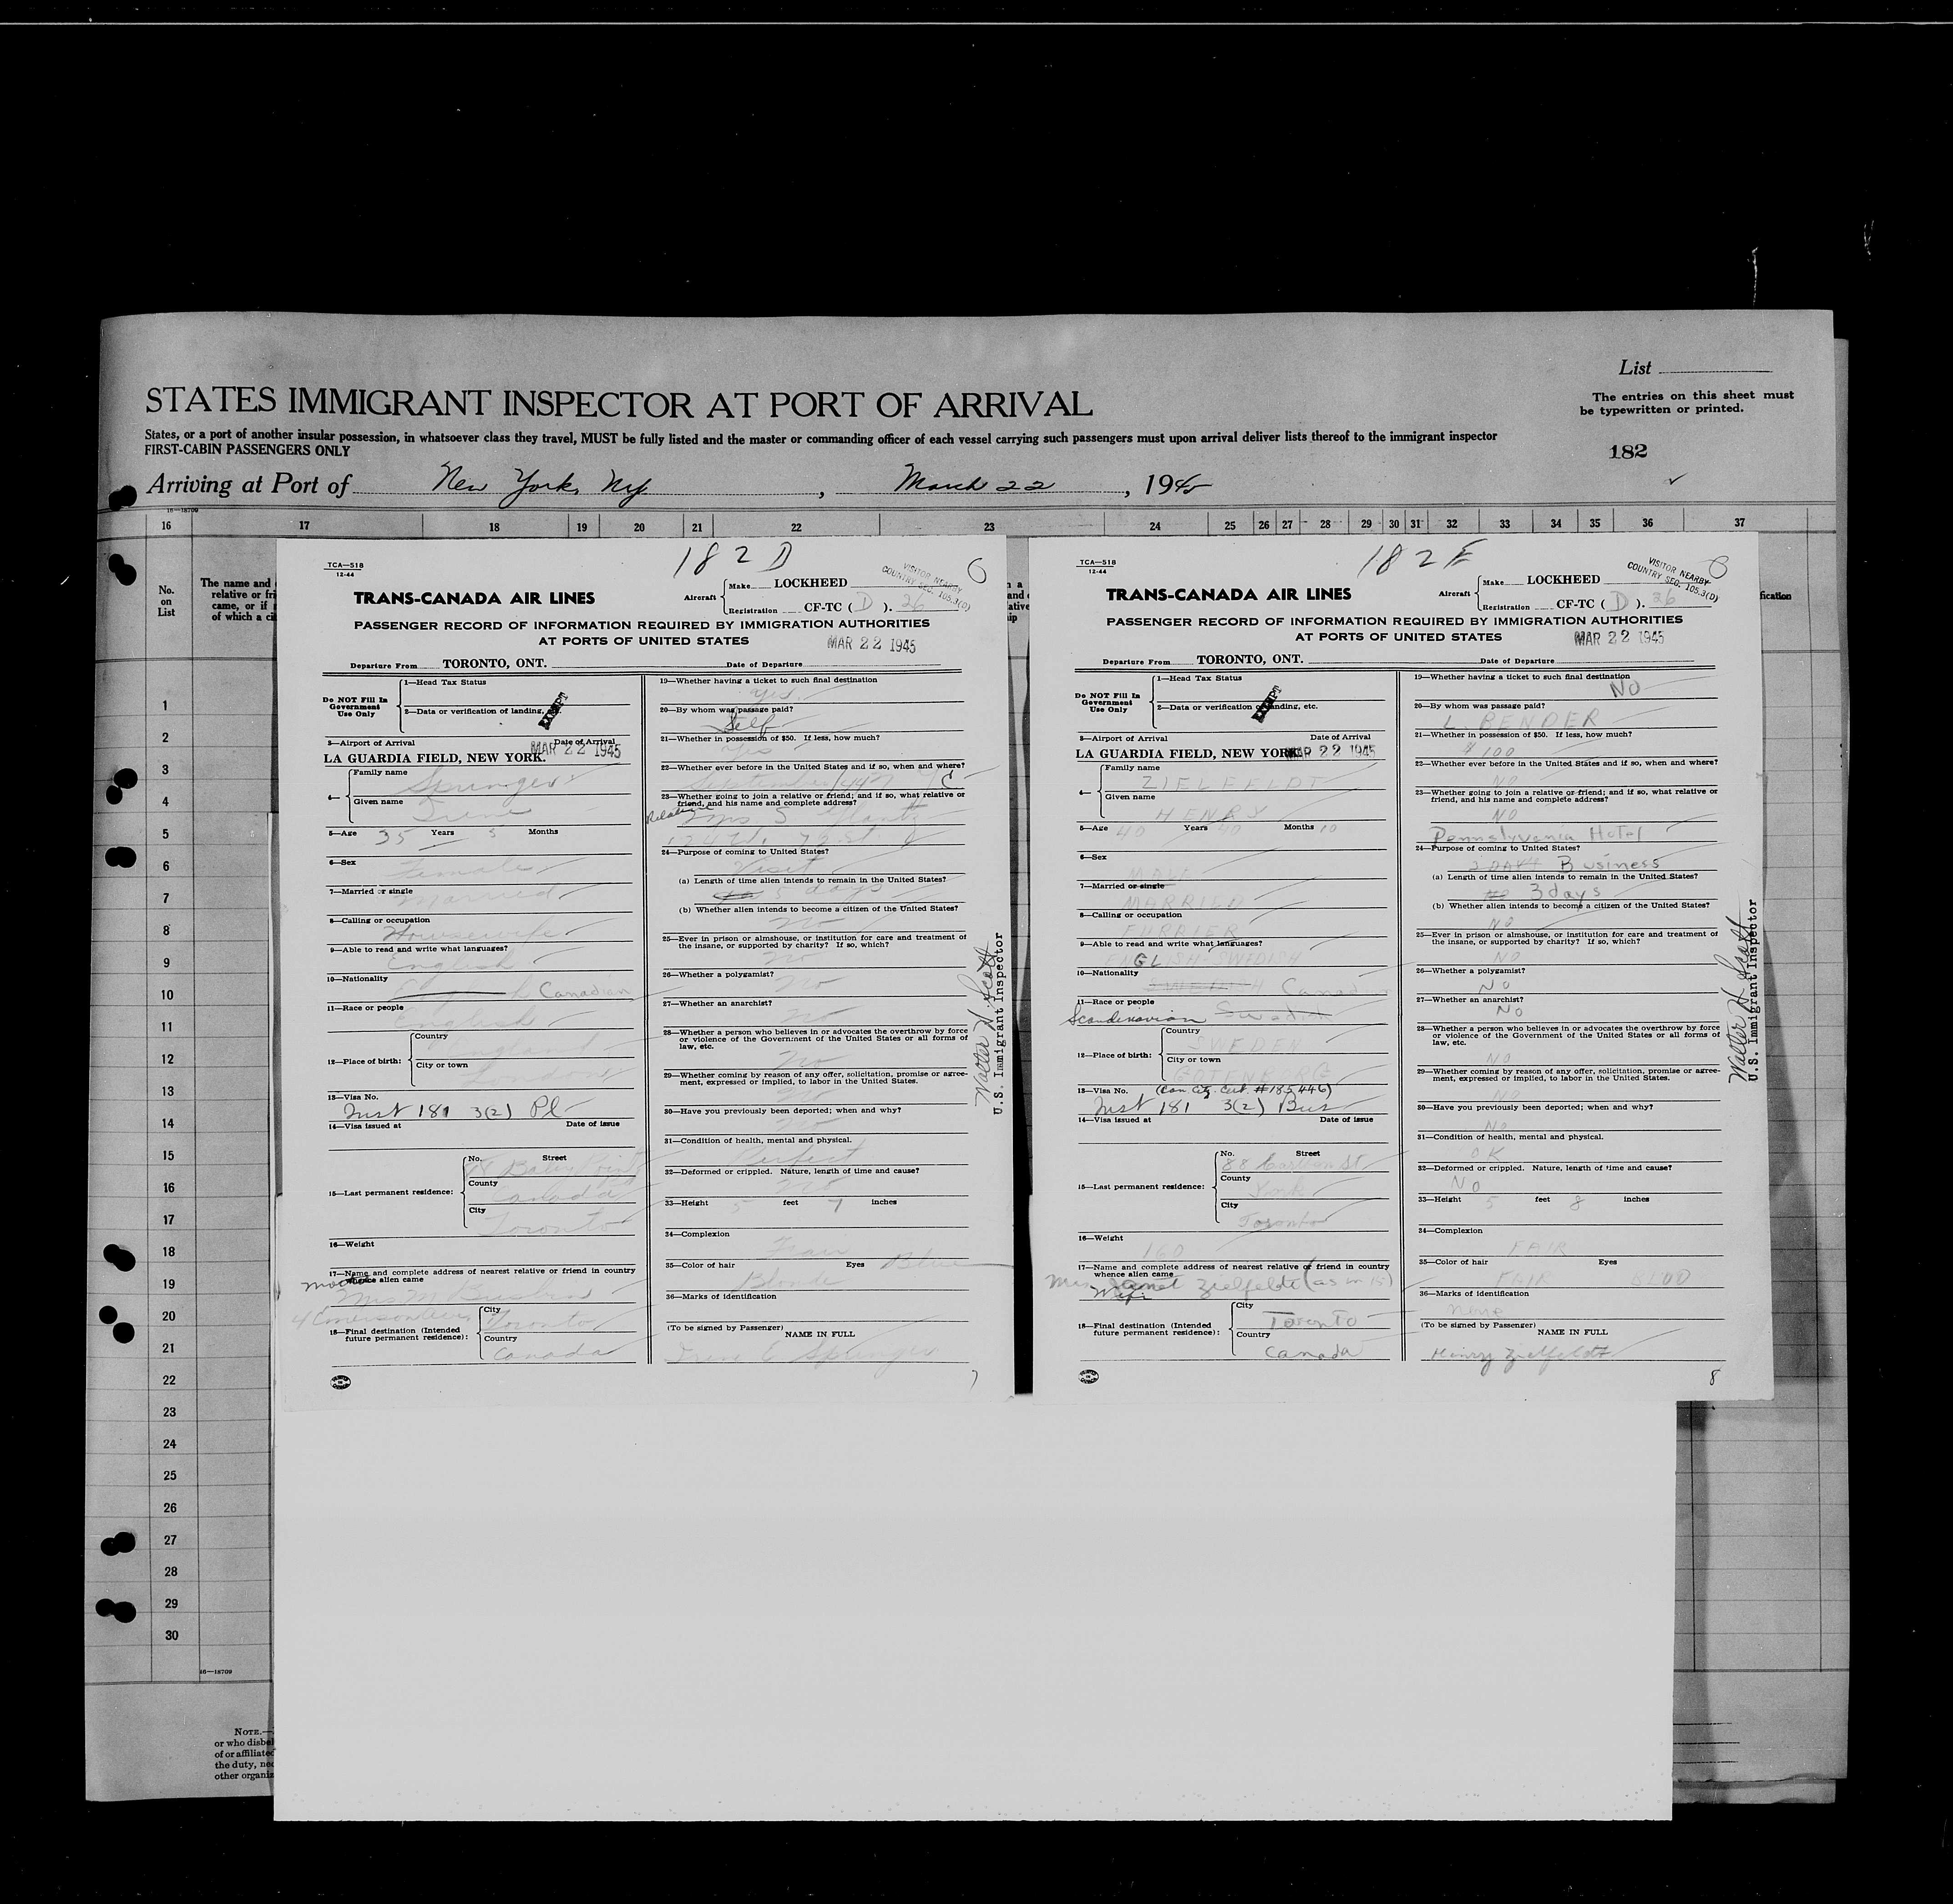 List
STATES IMMIGRANT INSPECTOR AT PORT OF ARRIVAL
The entries on this sheet must
be typewritten or printed.
States, or a port of another insular possession, in whatsoever class they travel, MUST be fully listed and the master or commanding officer of each vessel carrying such passengers must upon arrival deliver lists thereof to the immigrant inspector
FIRST-CABIN PASSENGERS ONLY
182
Arriving at Port of New York, NY, March 22, 1945
16—18709
16 17 18 19 20 21 22 23 24 25 26 27 28 29 30 31 32 33 34 35 36 37
No.
on
List
The name and
relative or fri
came, or if
of which a cit
1
2
3
4
5
6
7
8
9
10
11
12
13
14
15
16
17
18
19
20
21
22
23
24
25
26
27
28
29
30
16—18709
NOTE.—
or who disbel
of or affiliated
the duty, nec
other organiz
182 D
TCA—518
12-44
TRANS-CANADA AIR LINES
Aircraft
Make LOCKHEED
Registration CF-TC ( D ). 26
VISITOR NEARBY
COUNTRY SEC. 105.3(D)
PASSENGER RECORD OF INFORMATION REQUIRED BY IMMIGRATION AUTHORITIES
AT PORTS OF UNITED STATES
MAR 22 1945
Departure From TORONTO, ONT. Date of Departure
Do NOT Fill In
Government
Use Only
1—Head Tax Status
2—Data or verification of landing,
EXEMPT
3—Airport of Arrival Date of Arrival
LA GUARDIA FIELD, NEW YORK. MAR 22 1945
4—
Family name
Springer
Given name
Irene
5—Age 35 Years 5 Months
6—Sex
Female
7—Married or single
Married
8—Calling or occupation
Housewife
9—Able to read and write what languages?
English
10—Nationality
Canadian
11—Race or people
English
12—Place of birth:
Country
England
City or town
London
13—Visa No.
Inst 181 3(2) Pl
14—Visa issued at Date of issue
15—Last permanent residence:
No. Street
78 Baby Point
County
Canada
City
Toronto
16—Weight
17—Name and complete address of nearest relative or friend in country
whence alien came
Mrs M
18—Final destination (Intended
future permanent residence):
City
Toronto
Country
Canada
19—Whether having a ticket to such final destination
Yes
20—By whom was passage paid?
Self
21—Whether in possession of $50. If less, how much?
Yes
22—Whether ever before in the United States and if so, when and where?
23—Whether going to join a relative or friend; and if so, what relative or
friend, and his name and complete address?
Relative
Mrs S
24—Purpose of coming to United States?
Visit
(a) Length of time alien intends to remain in the United States?
5 days
(b) Whether alien intends to become a citizen of the United States?
No
25—Ever in prison or almshouse, or institution for care and treatment of
the insane, or supported by charity? If so, which?
No
26—Whether a polygamist?
No
27—Whether an anarchist?
No
28—Whether a person who believes in or advocates the overthrow by force
or violence of the Government of the United States or all forms of
law, etc.
No
29—Whether coming by reason of any offer, solicitation, promise or agree-
ment, expressed or implied, to labor in the United States.
No
30—Have you previously been deported; when and why?
No
31—Condition of health, mental and physical.
Perfect
32—Deformed or crippled. Nature, length of time and cause?
No
33—Height 5 feet 7 inches
34—Complexion
Fair
35—Color of hair Eyes Blue
Blonde
36—Marks of identification
(To be signed by Passenger)
NAME IN FULL
Irene E Springer
7
Walter H Scott
U.S. Immigrant Inspector
182 E
TCA—518
12-44
TRANS-CANADA AIR LINES
Aircraft
Make LOCKHEED
Registration CF-TC ( D ). 26
VISITOR NEARBY
COUNTRY SEC. 105.3(D)
PASSENGER RECORD OF INFORMATION REQUIRED BY IMMIGRATION AUTHORITIES
AT PORTS OF UNITED STATES
MAR 22 1945
Departure From TORONTO, ONT. Date of Departure
Do NOT Fill In
Government
Use Only
1—Head Tax Status
2—Data or verification of landing, etc.
EXEMPT
3—Airport of Arrival Date of Arrival
LA GUARDIA FIELD, NEW YORK. MAR 22 1945
4—
Family name
ZIELFELDT
Given name
HENRY
5—Age 40 Years 40 Months 10
6—Sex
MALE
7—Married or single
MARRIED
8—Calling or occupation
FURRIER
9—Able to read and write what languages?
ENGLISH SWEDISH
10—Nationality
SWEDISH Canadian
11—Race or people
Scandinavian Swedish
12—Place of birth:
Country
SWEDEN
City or town
GOTENBURG
13—Visa No. (Can Ctz Cert #185446)
Inst 181 3(2) Bus
14—Visa issued at Date of issue
15—Last permanent residence:
No. Street
88 St
County
York
City
Toronto
16—Weight
160
17—Name and complete address of nearest relative or friend in country
whence alien came
Mrs Janet Zielfeldt (as in 15)
Wife
18—Final destination (Intended
future permanent residence):
City
Toronto
Country
Canada
19—Whether having a ticket to such final destination
NO
20—By whom was passage paid?
L. BENDER
21—Whether in possession of $50. If less, how much?
$100
22—Whether ever before in the United States and if so, when and where?
NO
23—Whether going to join a relative or friend; and if so, what relative or
friend, and his name and complete address?
NO
Pennslyvania Hotel
24—Purpose of coming to United States?
2 DAYS Business
(a) Length of time alien intends to remain in the United States?
NO 3 days
(b) Whether alien intends to become a citizen of the United States?
NO
25—Ever in prison or almshouse, or institution for care and treatment of
the insane, or supported by charity? If so, which?
NO
26—Whether a polygamist?
NO
27—Whether an anarchist?
NO
28—Whether a person who believes in or advocates the overthrow by force
or violence of the Government of the United States or all forms of
law, etc.
NO
29—Whether coming by reason of any offer, solicitation, promise or agree-
ment, expressed or implied, to labor in the United States.
NO
30—Have you previously been deported; when and why?
NO
31—Condition of health, mental and physical.
OK
32—Deformed or crippled. Nature, length of time and cause?
NO
33—Height 5 feet 8 inches
34—Complexion
FAIR
35—Color of hair Eyes
FAIR BLUE
36—Marks of identification
None
(To be signed by Passenger)
NAME IN FULL
Henry Zielfeldt
8
Walter H Scott
U.S. Immigrant Inspector
fication